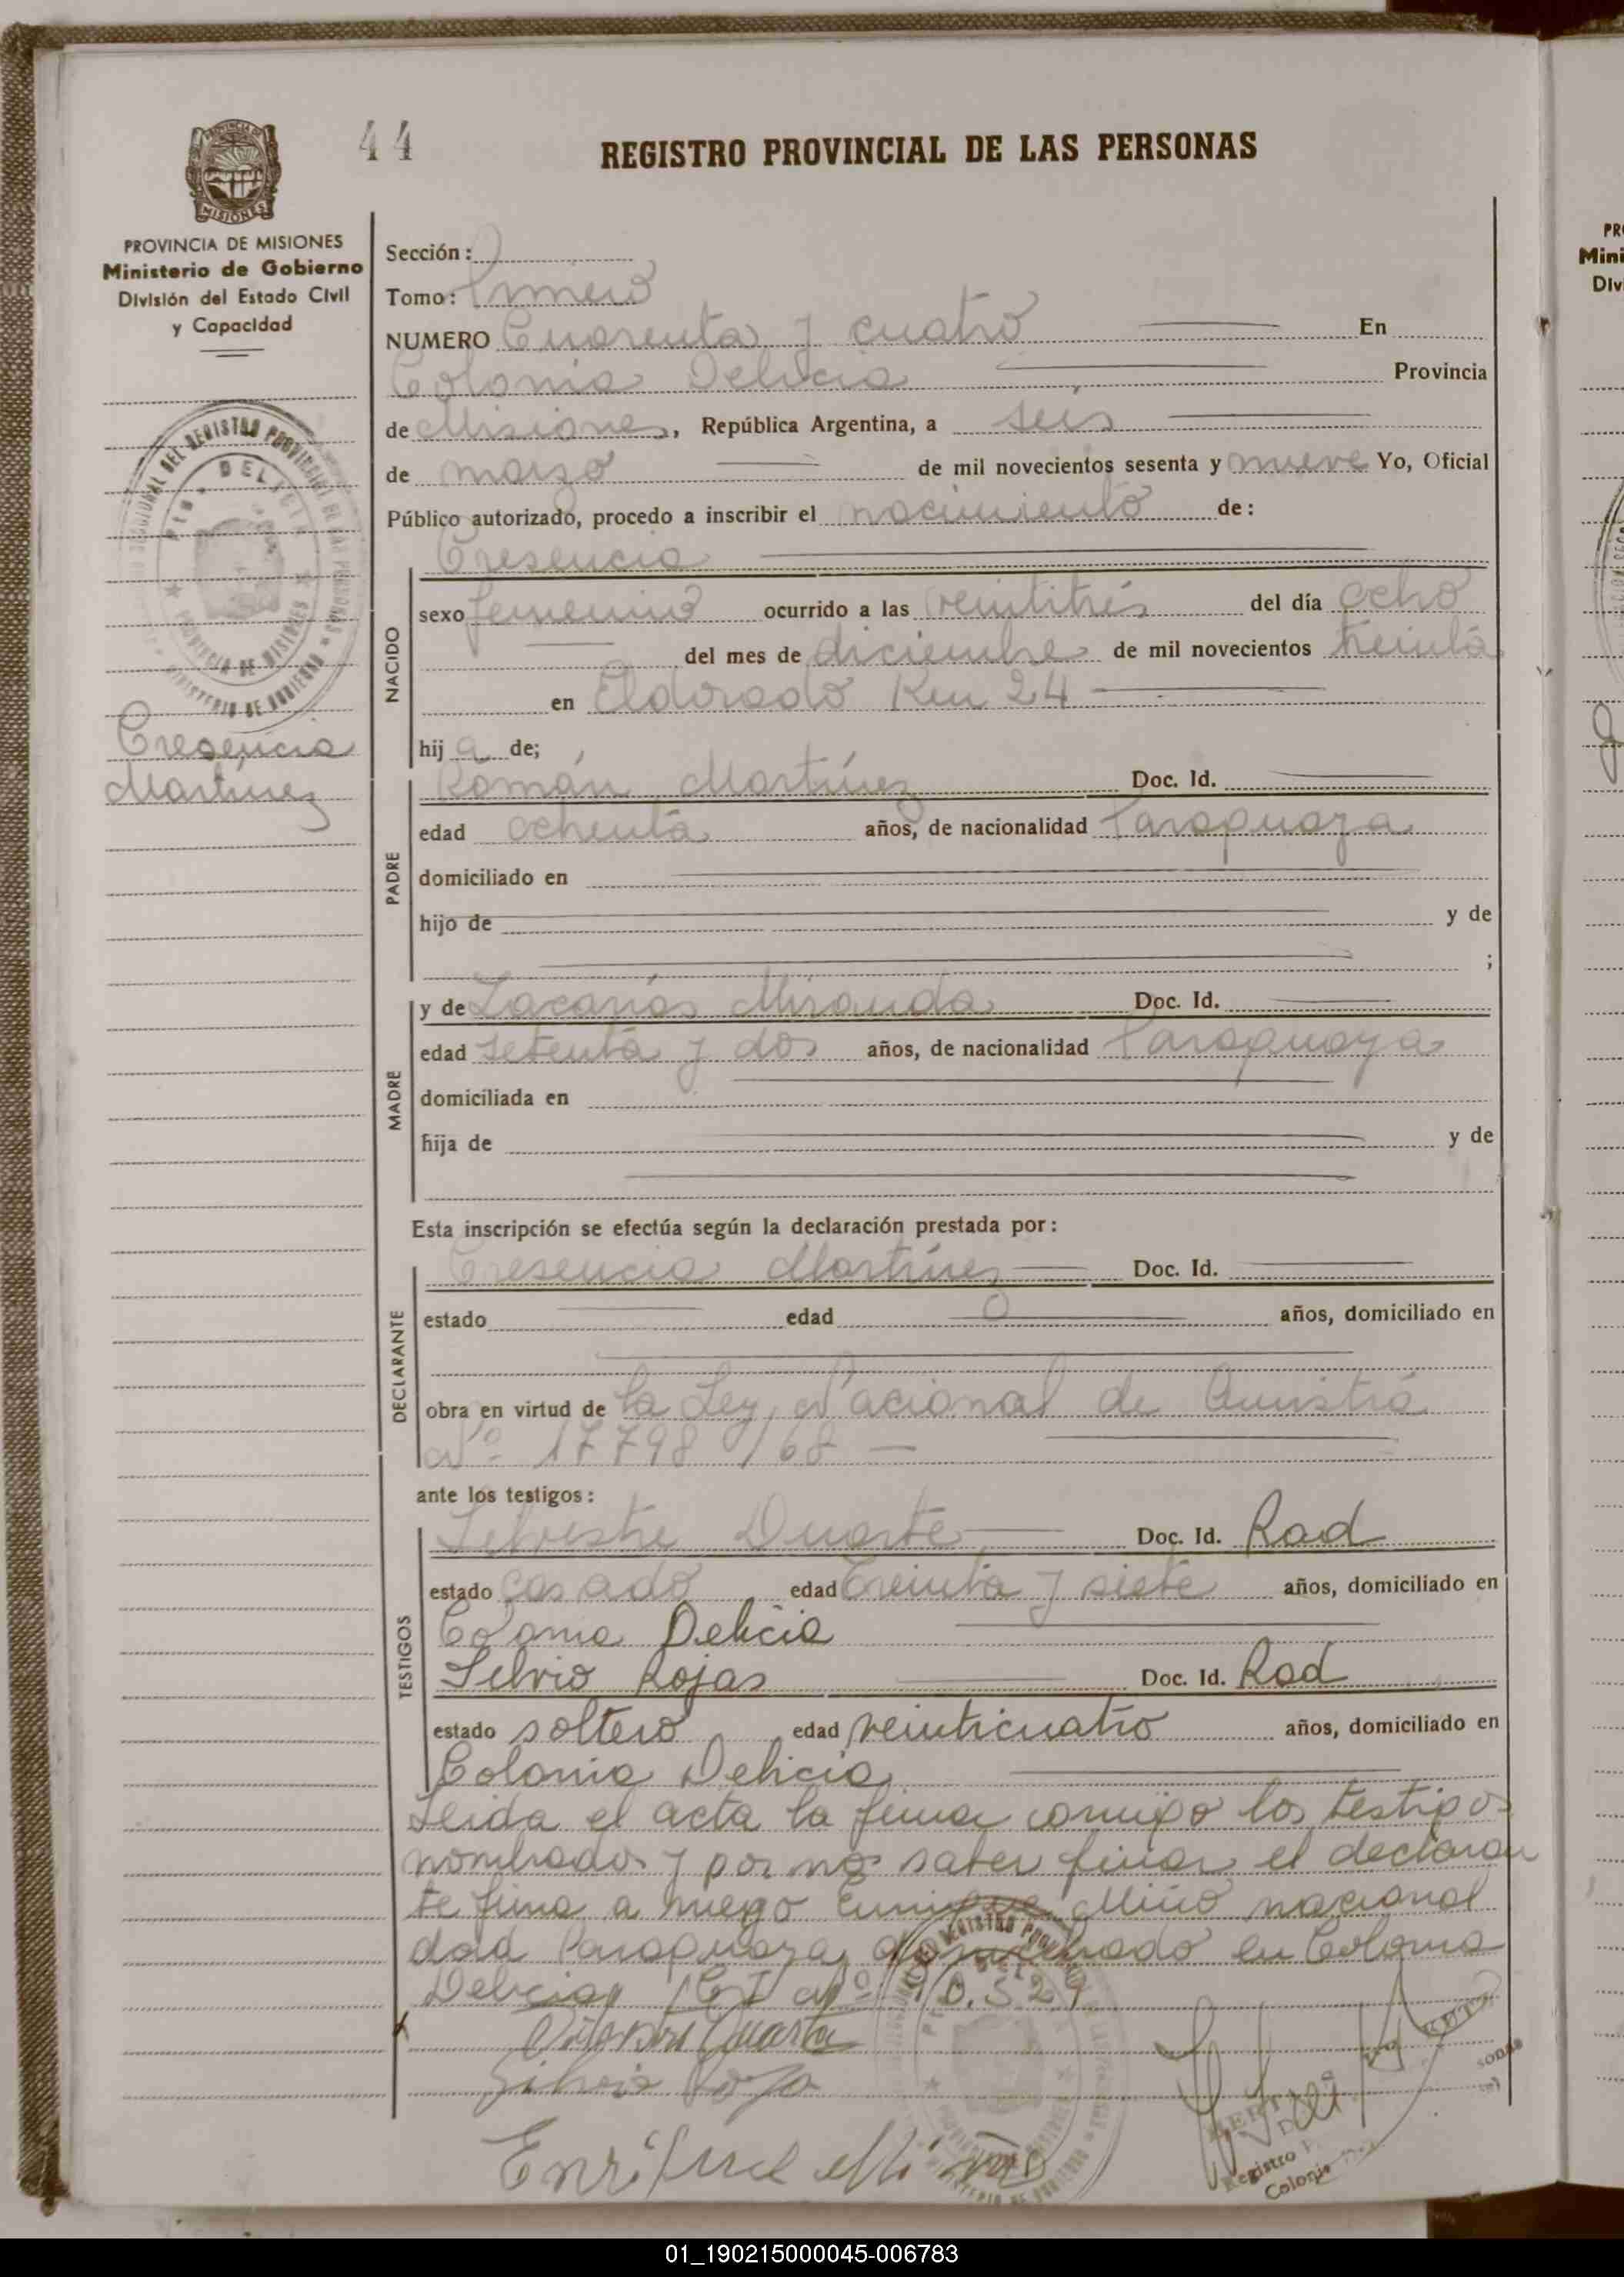 44
REGISTRO PROVINCIAL DE LAS PERSONAS
PROVINCIA DE MISIONES
Ministerio de Gobierno
División del Estado Civil
y Capacidad
Sección:
Tomo: Primero
NUMERO Cuarenta y cuatro En
Colonia Delicia Provincia
de Misiones, República Argentina, a seis
de marzo de mil novecientos sesenta y nueve Yo, Oficial
Público autorizado, procedo a inscribir el nacimiento de:
Cresencia
NACIDO
sexo femenino ocurrido a las veintitrés del día ocho
del mes de diciembre de mil novecientos treinta
en Eldorado Km 24
Cresencia
Martínez
hija de;
PADRE
Román Martínez Doc. Id.
edad ochenta años, de nacionalidad Paraguaya
domiciliado en
hijo de y de
;
MADRE
y de Miranda Doc. Id.
edad setenta y dos años, de nacionalidad Paraguaya
domiciliada en
hija de y de
Esta inscripción se efectúa según la declaración prestada por:
DECLARANTE
Cresencia Martínez Doc. Id.
estado edad años, domiciliado en
obra en virtud de la Ley Nacional de
Nº 17798/68 -
ante los testigos:
TESTIGOS
Silvestre Duarte Doc. Id. Rad
estado casado edad Treinta y siete años, domiciliado en
Colonia Delicia
Silvio Rojas Doc. Id. Rad
estado soltero edad veinticuatro años, domiciliado en
Colonia Delicia
Leida el acta la firma conmigo los testigos
nombrados y por no saber firmar el declaran
te firma a ruego Enrique Miño nacional
dad Paraguaya domiciliado en Colonia
Delicia, CI Nº 10.529
Silvio Rojas
Enrique Miño
Registro
Colonia
01_190215000045-006783